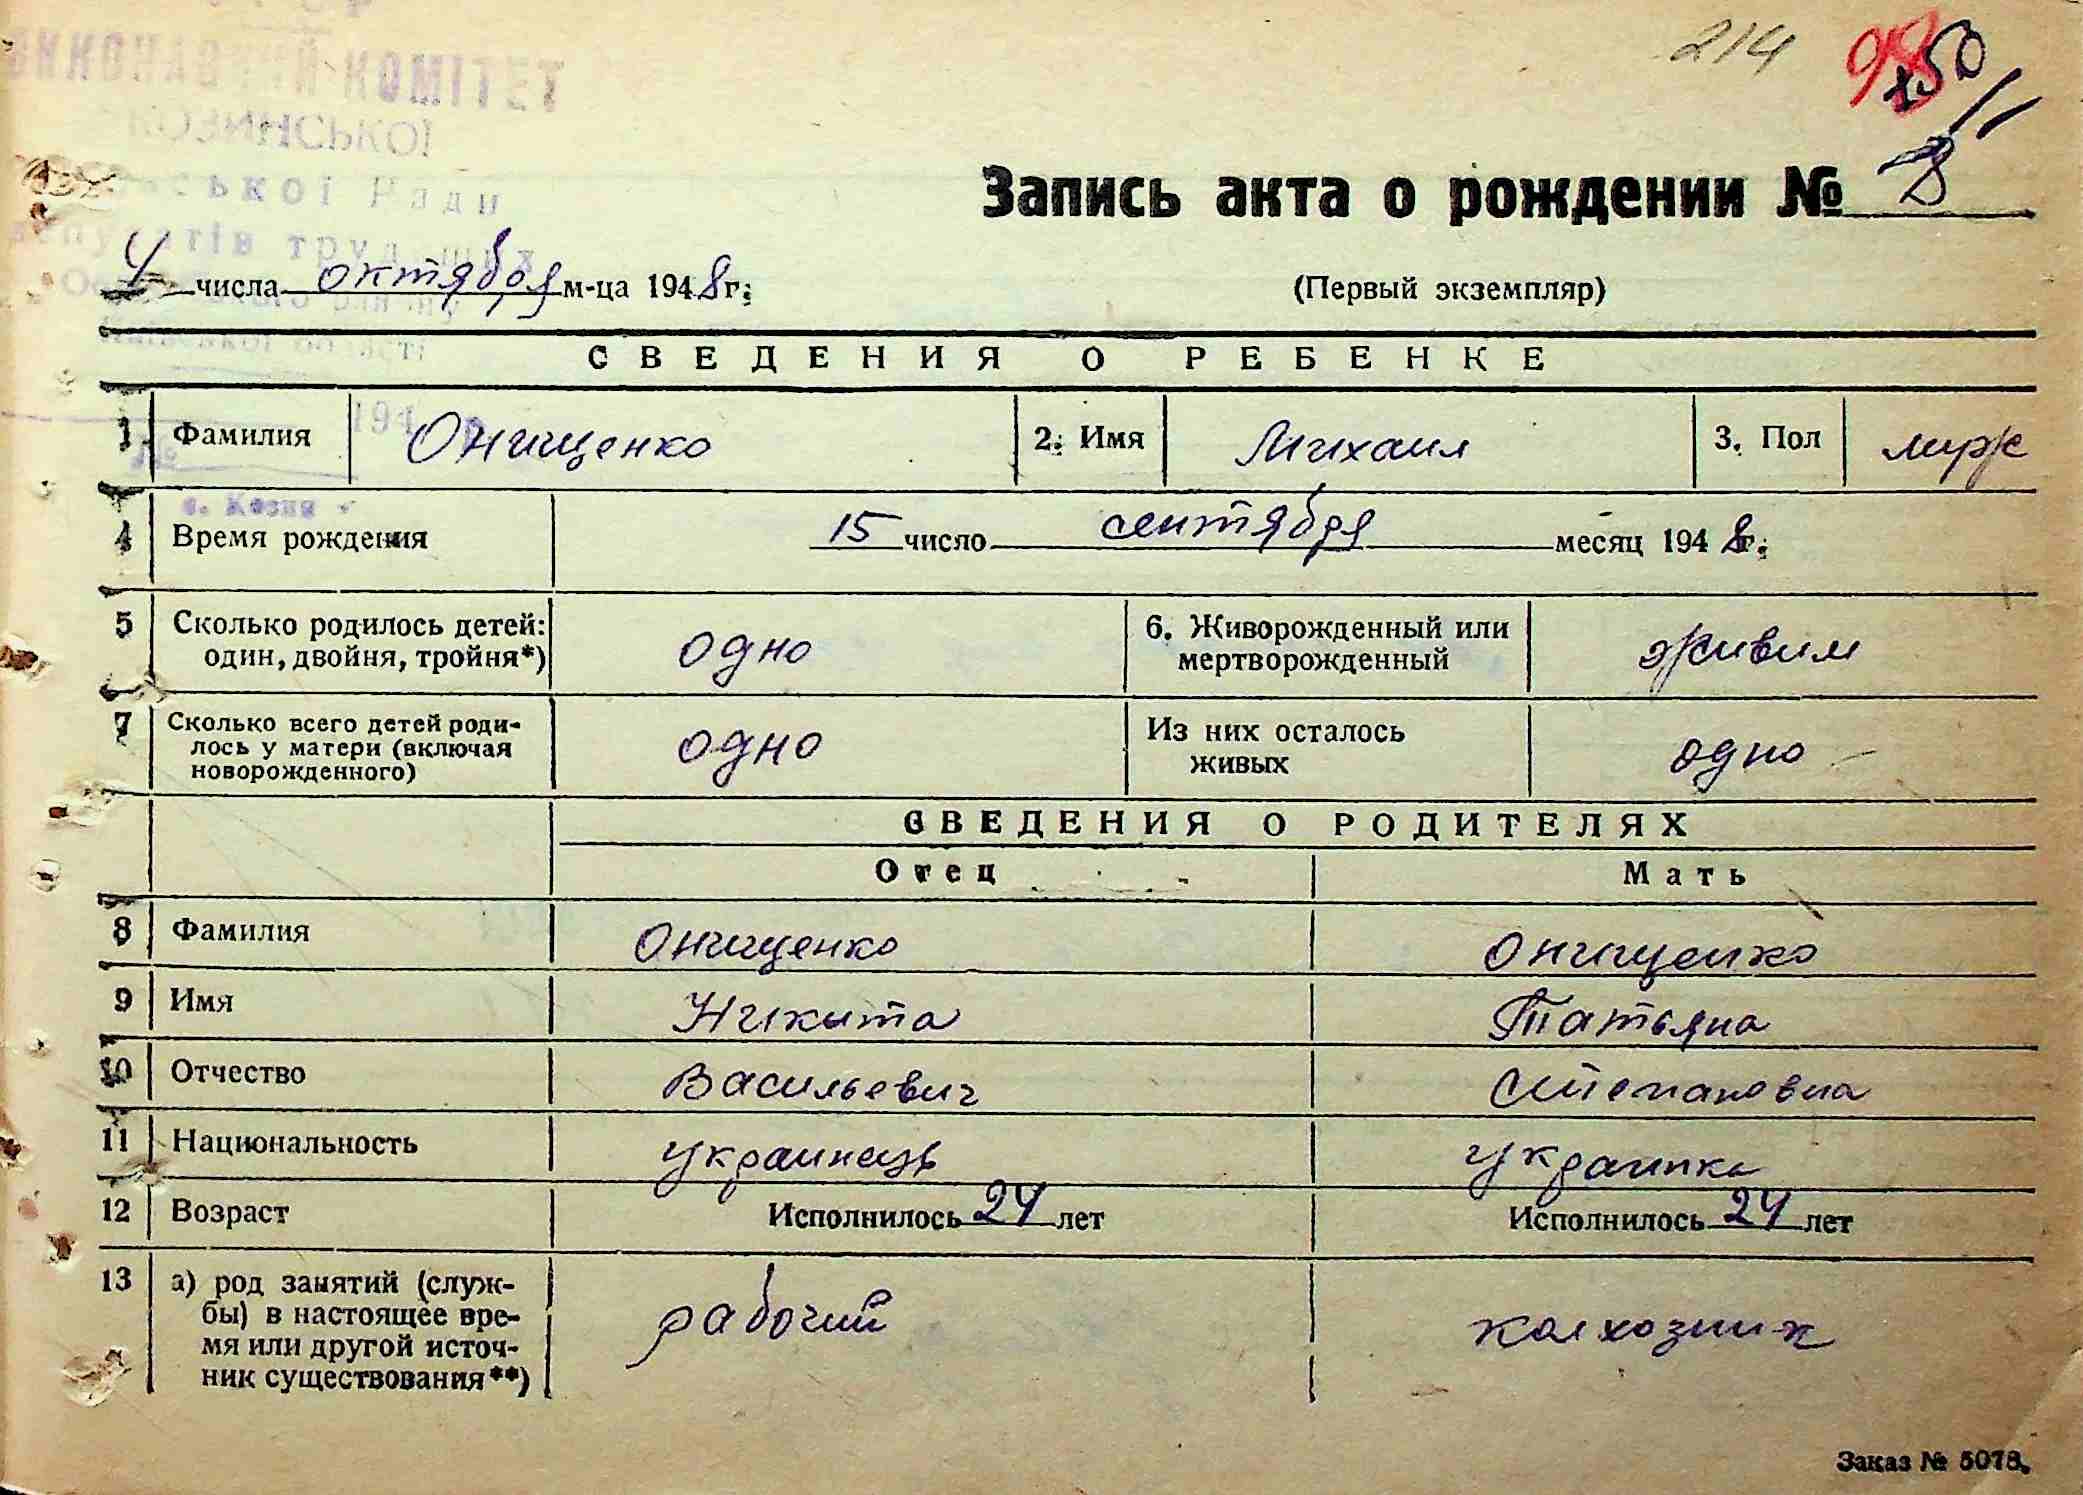 214 98 50
ВИКОНАВЧИЙ КОМІТЕТ
КОЗИНСЬКОЇ
Ради
Запись акта о рождении № 8
4 числа октября м-ца 1948 г.
(Первый экземпляр)
СВЕДЕНИЯ О РЕБЕНКЕ
1 Фамилия Онищенко 2. Имя Михаил 3. Пол муж
с. Козин
4 Время рождения 15 число сентября месяц 1948 г.
5 Сколько родилось детей: 6. Живорожденный или
один, двойня, тройня*) одно мертворожденный живим
7 Сколько всего детей роди- Из них осталось
лось у матери (включая одно живых одно
новорожденного)
СВЕДЕНИЯ О РОДИТЕЛЯХ
Отец Мать
8 Фамилия Онищенко Онищенко
9 Имя Никыта Татьяна
10 Отчество Васильевич Степановна
11 Национальность украинець украинка
12 Возраст Исполнилось 24 лет Исполнилось 24 лет
13 а) род занятий (служ-
бы) в настоящее вре- рабочий колхозник
мя или другой источ-
ник существования**)
Заказ № 5078.